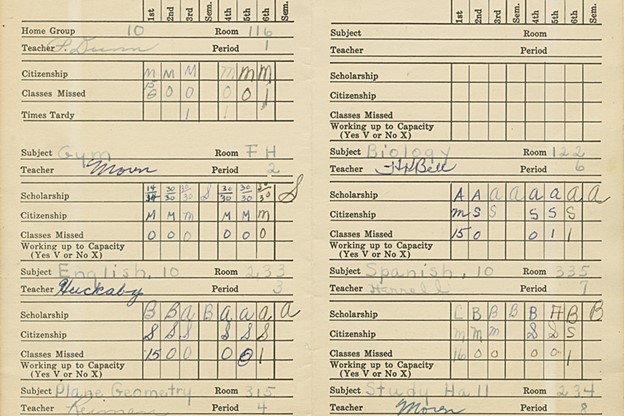 1st 2nd 3rd Sem. 4th 5th 6th Sem.
Home Group 10 Room 116
Teacher Period 1
Citizenship M M M M M M
Classes Missed 15/6 0 0 0 0 1
Times Tardy 1 1
Subject Gym Room F H
Teacher Moren Period 2
Scholarship 30/30 S 30/30 30/30 S
Citizenship M M m M M m
Classes Missed 0 0 0 0 0 0
Working up to Capacity
(Yes V or No X)
Subject English, 10 Room 233
Teacher Huckaby Period 3
Scholarship B B a B a a a a
Citizenship S S S S S S
Classes Missed 15 0 0 0 0 1
Working up to Capacity
(Yes V or No X)
Subject Plane Geometry Room 315
Teacher Period 4
1st 2nd 3rd Sem. 4th 5th 6th Sem.
Subject Room
Teacher Period
Scholarship
Citizenship
Classes Missed
Working up to Capacity
(Yes V or No X)
Subject Biology Room 122
Teacher Bell Period 6
Scholarship A A a a a a a a
Citizenship m S S S S S
Classes Missed 15 0 0 1 1
Working up to Capacity
(Yes V or No X)
Subject Spanish, 10 Room 335
Teacher Period 7
Scholarship B B B B A B B
Citizenship m m m S S S
Classes Missed 16 0 0 0 0 1
Working up to Capacity
(Yes V or No X)
Subject Study Hall 234
Teacher Moren Period 8